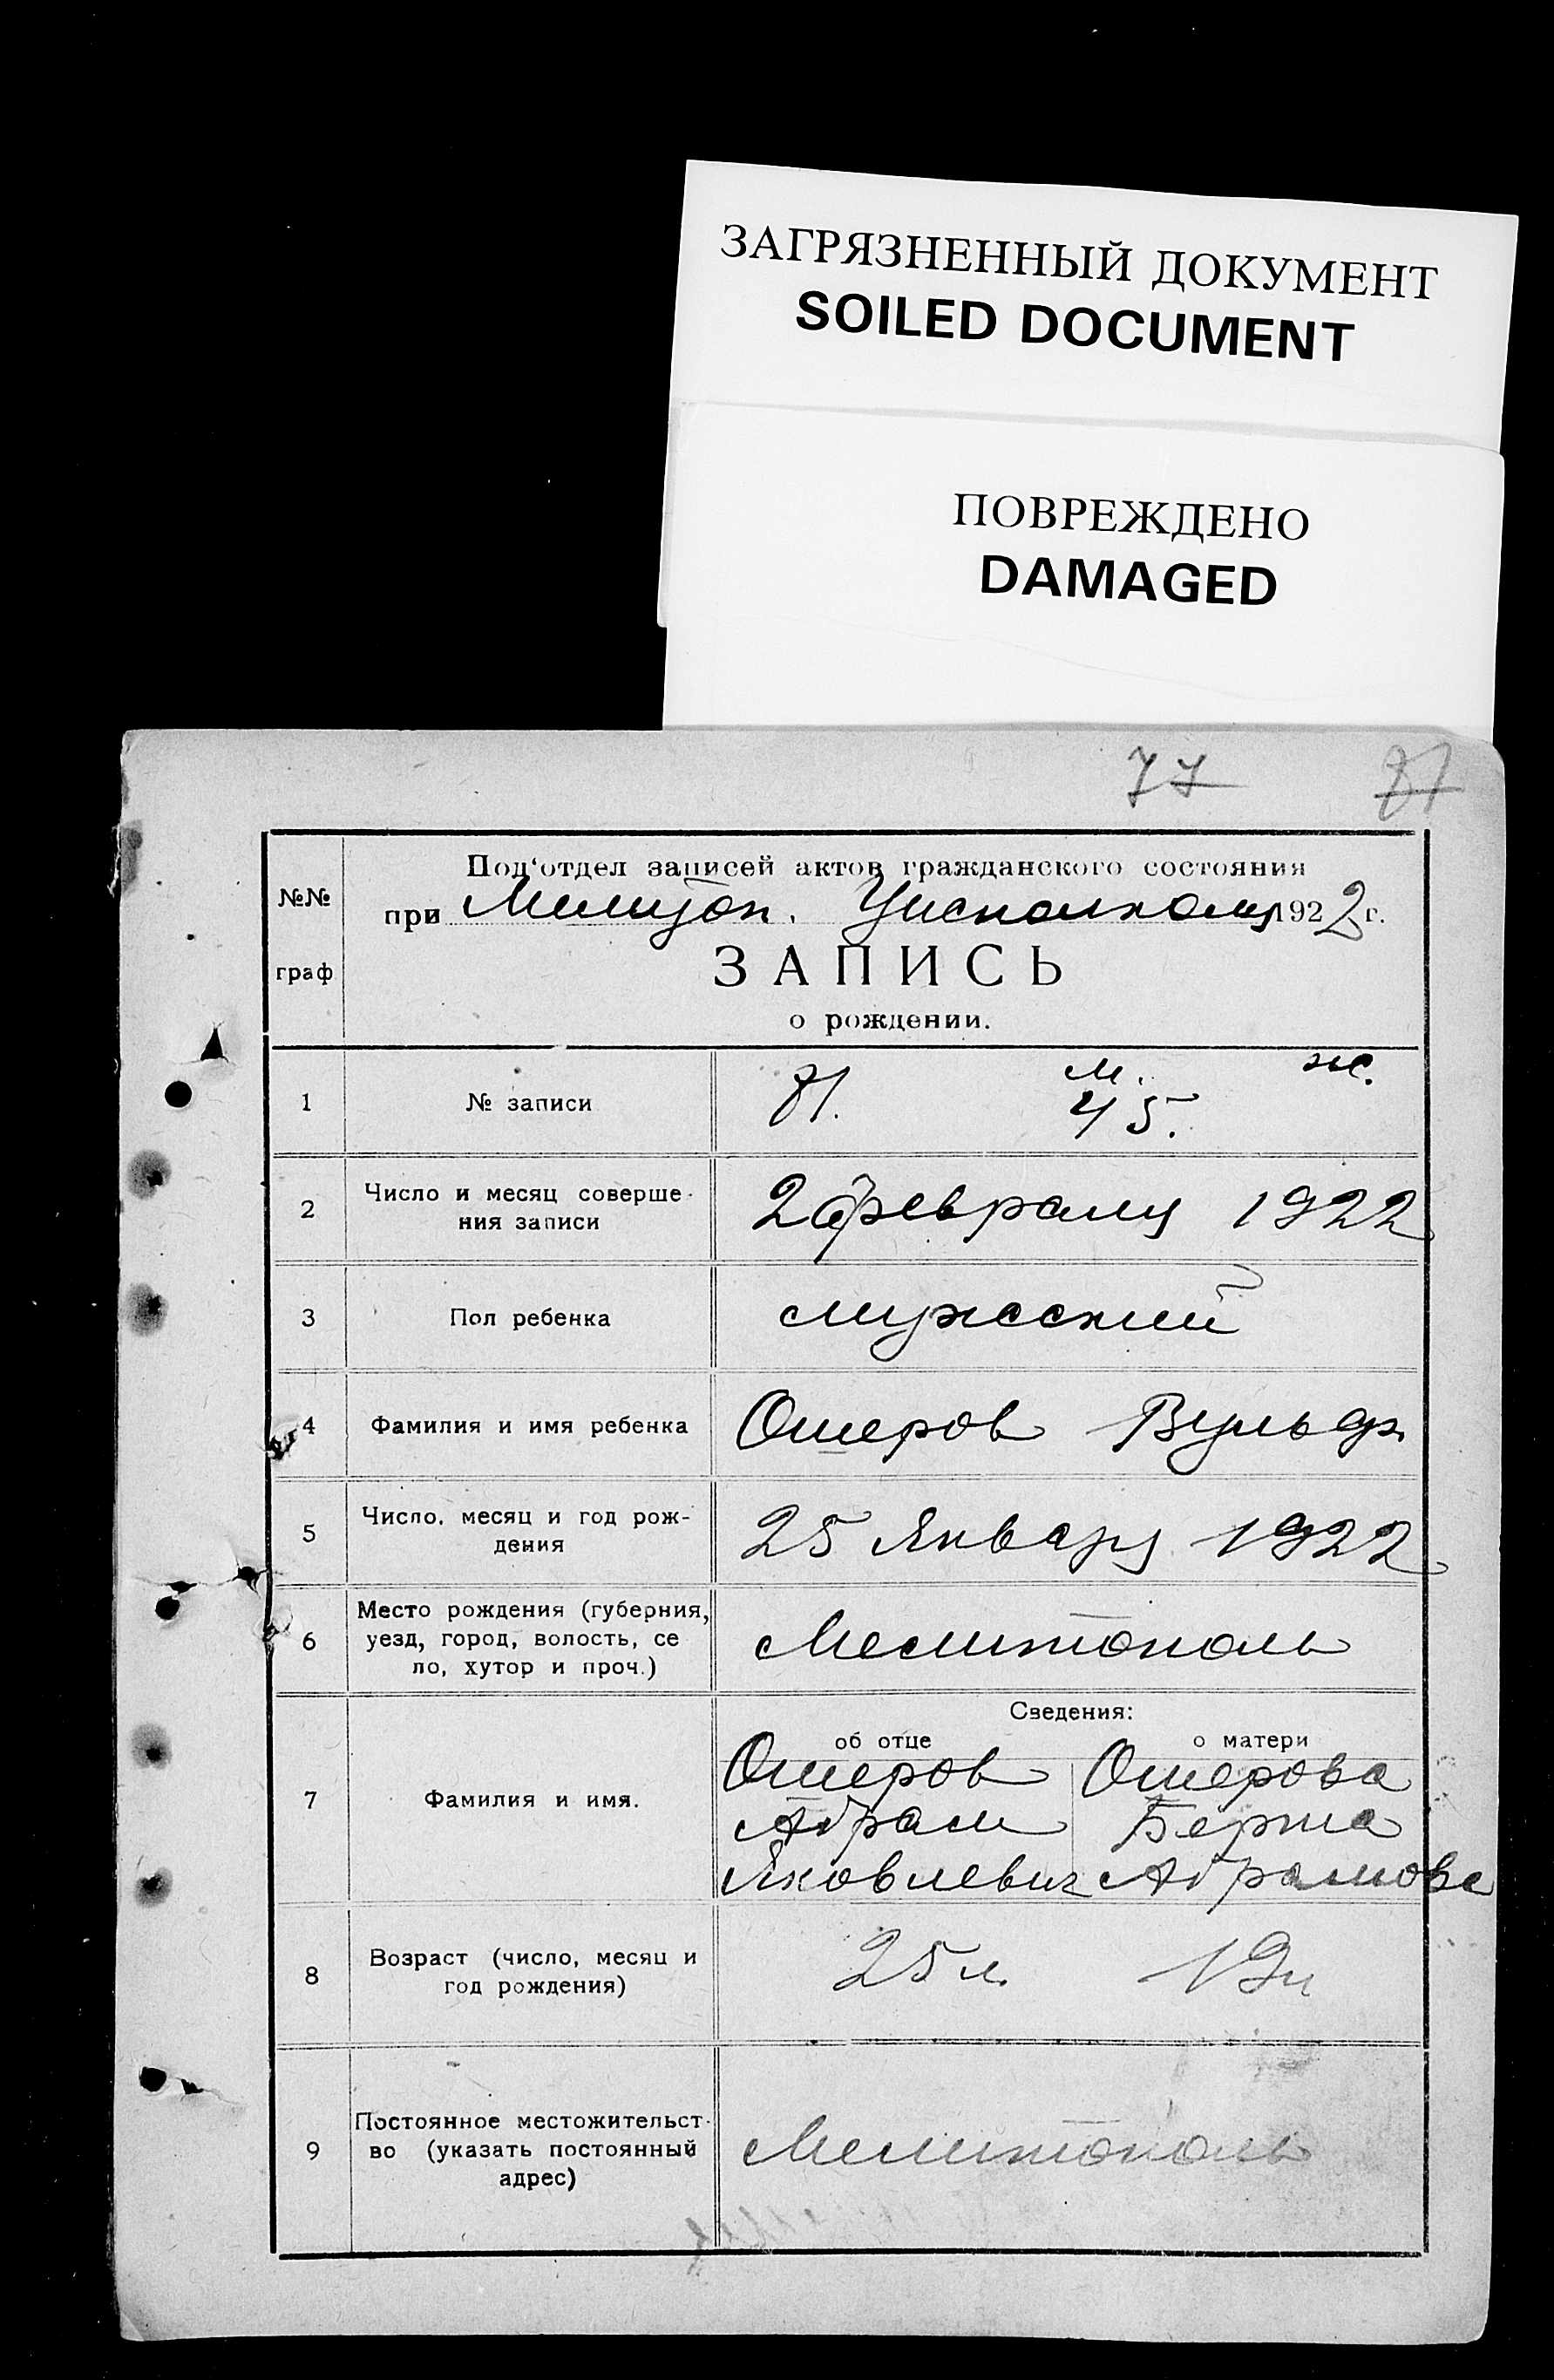 ЗАГРЯЗНЕННЫЙ ДОКУМЕНТ
SOILED DOCUMENT
ПОВРЕЖДЕНО
DAMAGED
77 81
№№ граф
Под‘отдел записей актов гражданского состояния
при Мелитоп. Уисполкому 1922 г.
ЗАПИСЬ
о рождении.
1 № записи 81. м. 45. ж.
2 Число и месяц соверше-
ния записи 2 февраля 1922
3 Пол ребенка мужеский
4 Фамилия и имя ребенка Ошеров Вульф
5 Число, месяц и год рож-
дения 25 Января 1922
6 Место рождения (губерния,
уезд, город, волость, се
ло, хутор и проч.) Мелитополь
Сведения:
об отце о матери
7 Фамилия и имя. Ошеров Ошерова
Абрам Берта
Яковлевич Абрамова
8 Возраст (число, месяц и
год рождения) 25 л. 19 л
9 Постоянное местожительст-
во (указать постоянный
адрес) Мелитополь